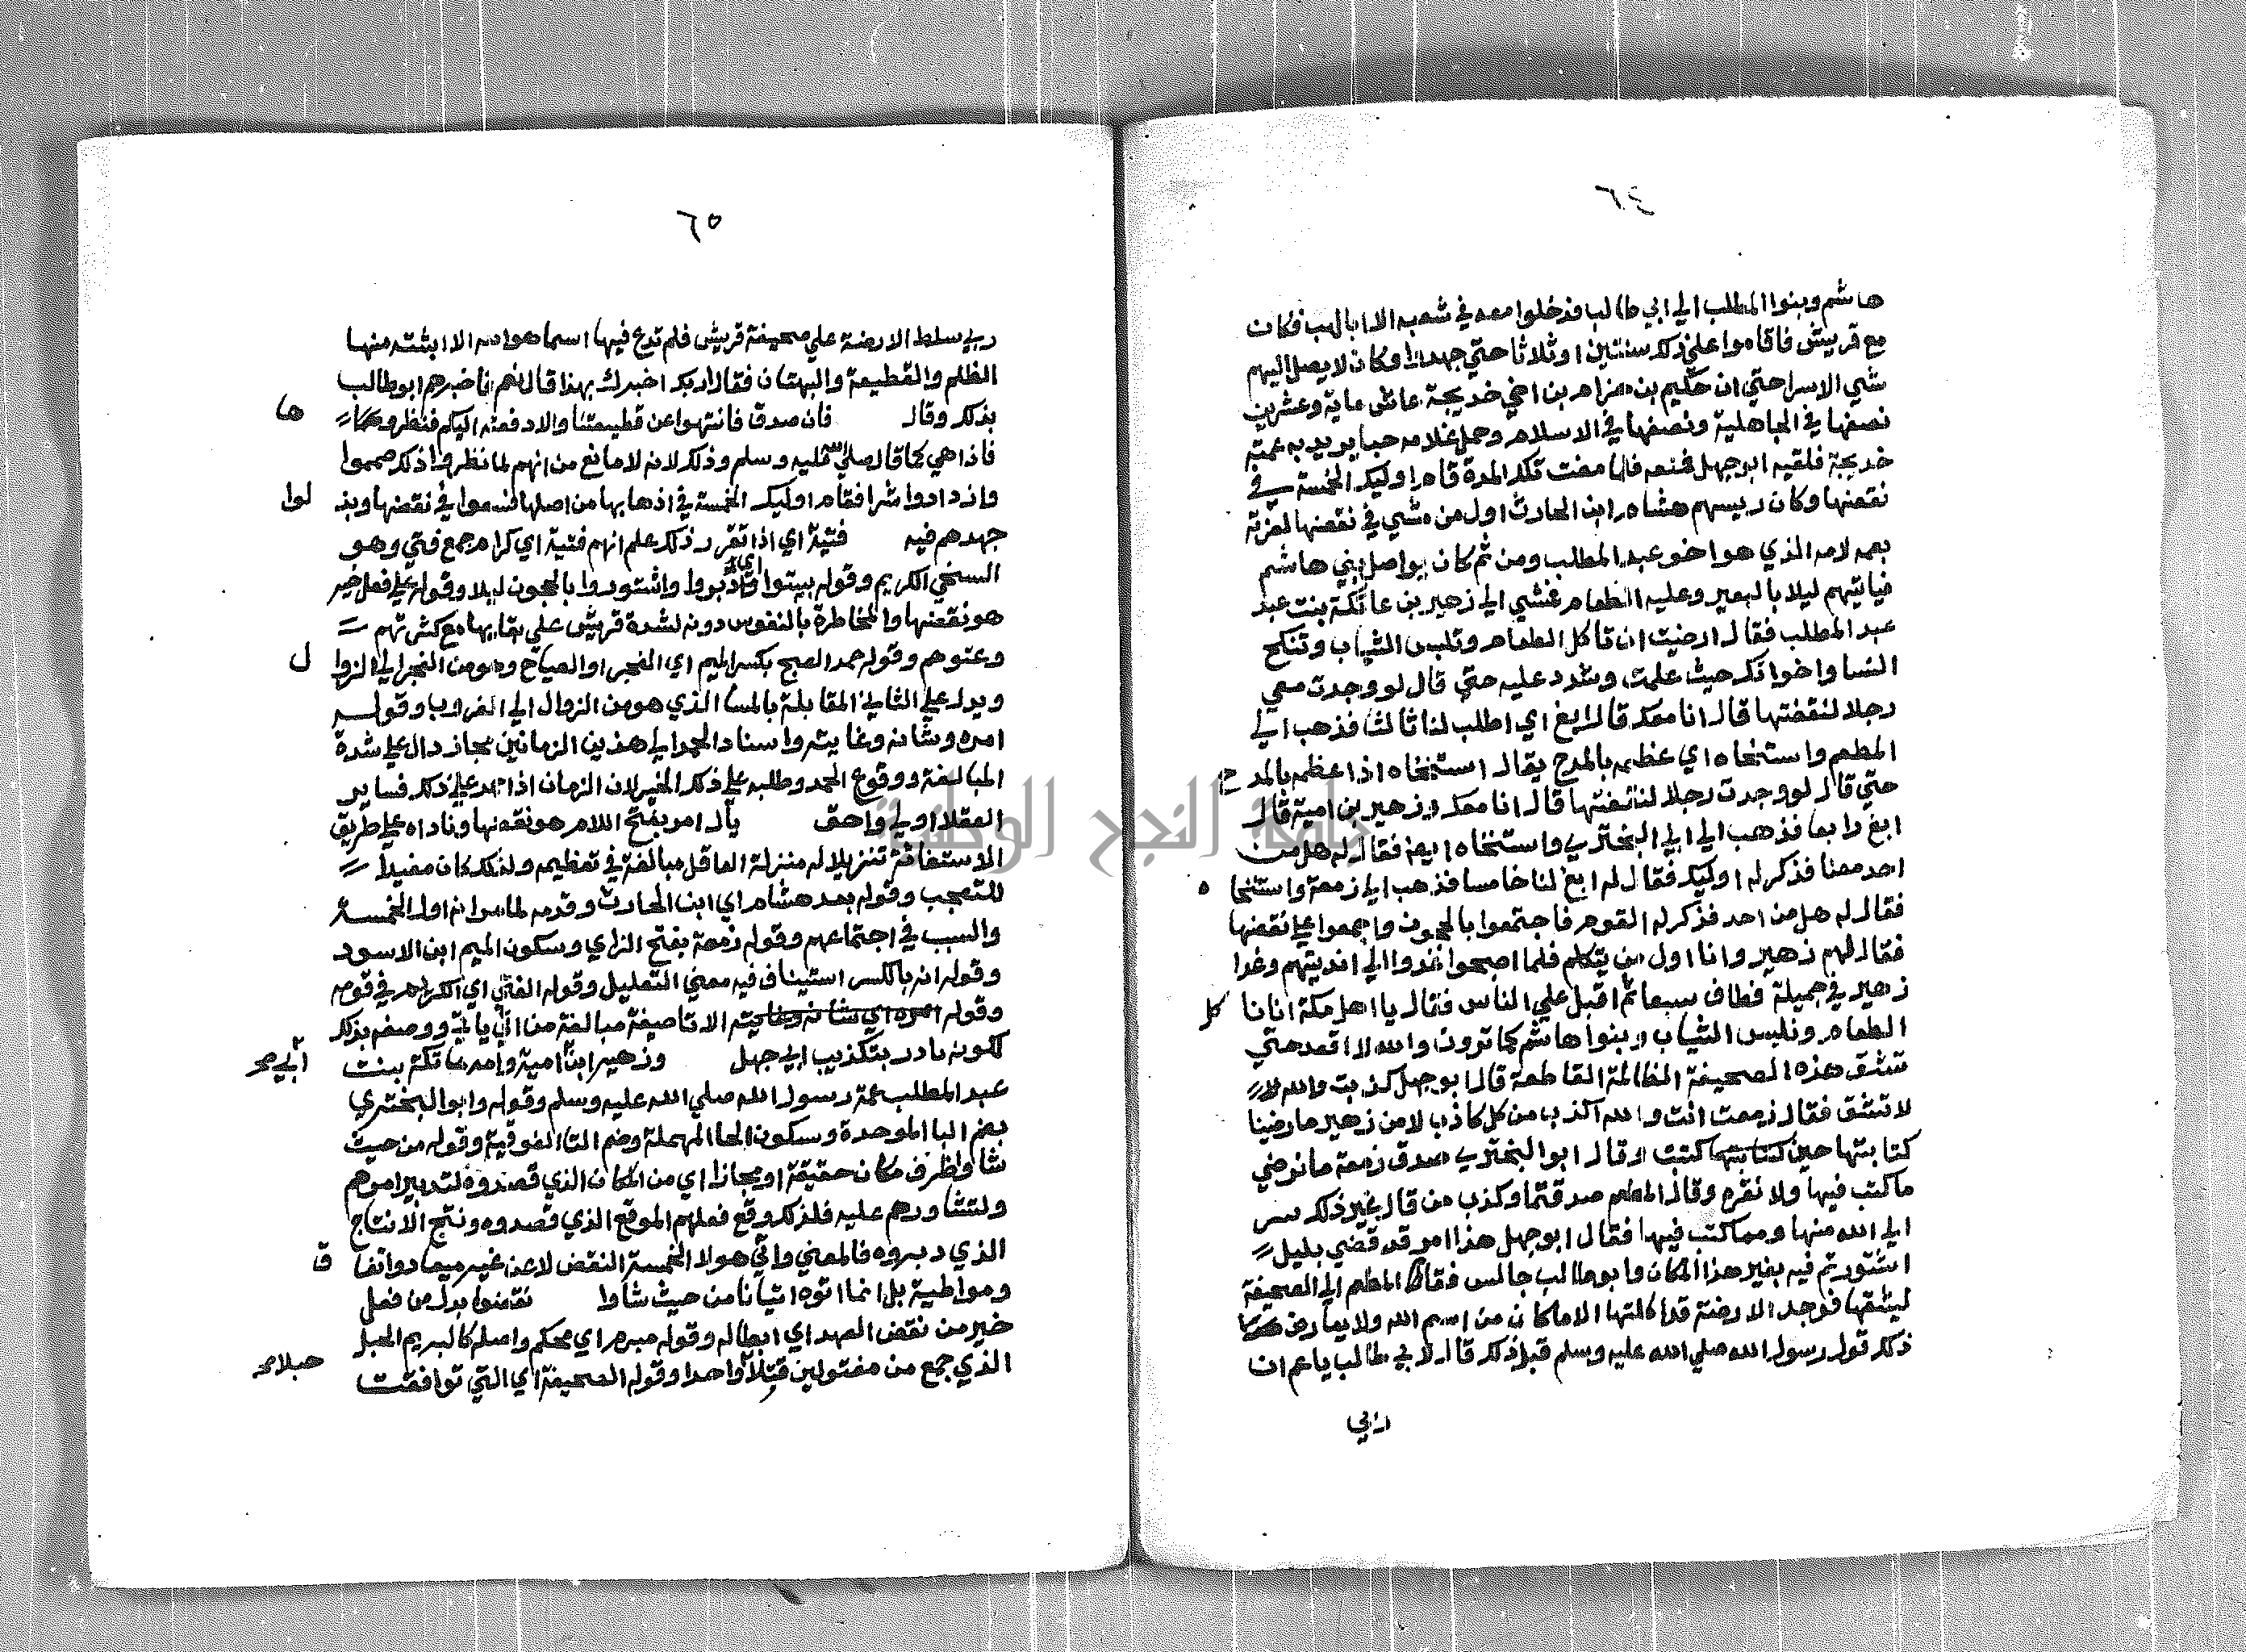 ٦٤
هاشم وبنوا المطلب الي ابي طالب فدخلوا معه في شعبه الا ابا لهب فكان
مع قريش فاقاموا علي ذلك سنتين او ثلاثا حتي جهدوا وكان لا يصل اليهم
شي الا سرا حتي ان حكيم بن حزام بن اخي خديجة عاش ماية وعشرين
نصفها في الجاهلية ونصفها في الاسلام وحمل غلامه حبا يريد به عمته
خديجة فلقيه ابو جهل فمنعه فلما مضت تلك المدة قام اوليك الخمسة في
نقضها وكان رييسهم هشام ابن الحارث اول من مشي في نقضها لعزته
بعمه لامه الذي هو اخو عبد المطلب ومن ثم كان يواصل بني هاشم
فياتيهم ليلا بالبعير وعليه الطعام فمشي الي زهير بن عاتكة بنت عبد
عبد المطلب فقال ارضيت ان تاكل الطعام وتلبس الثياب وتنكح
النسا واخوانك حيث علمت وشدد عليه حتي قال لو وجدت معي
رجلا لنقضتها قال انا معك قال ابغ اي اطلب لنا ثالثا فذهب الي
المطعم واستنخاه اي عظمه بالمدح يقال استنخاه اذا عظمه بالمدح
حتي قال لو وجدت رجلا لنقضتها قال انا معك وزهير بن امية قال
ابغ رابعا فذهب الي ابي البختري واستنخاه ايضا فقال له هل من
احد معنا فذكر له اوليك فقال له ابغ لنا خامسا فذهب الي زمعة واستنخاه
فقال له هل من احد فذكر له القوم فاجتمعوا بالحجون واجمعوا علي نقضها
فقال لهم زهير وانا اول من يتكلم فلما اصبحوا غدوا الي انديتهم وغدا
زهير في جميلة فطاف سبعا ثم اقبل علي الناس فقال يا اهل مكة انا ناكل
الطعام ونلبس الثياب وبنوا هاشم كما ترون والله لا اقعد حتي
تشق هذه الصحيفة الظالمة القاطعة قال ابو جهل كذبت والله لا
لا تشق فقال زمعت انت والله اكذب من كل كاذب لا من زهير ما رضينا
كتابتها حين كتبت وقال ابو البختري صدق زمعة ما نرضي
ما كتب فيها ولا نقره وقال المطعم صدقتما وكذب من قال غير ذلك نبرا
الي الله منها ومما كتب فيها فقال ابو جهل هذا امر قد قضي بليل
اشتورتم فيه بغير هذا المكان وابو طالب جالس فقام المطعم الي الصحيفة
ليشقها فوجد الارضة قد اكلتها الا ما كان من اسم الله ولا يعارض
ذلك قول رسول الله صلي الله عليه وسلم قبل ذلك قال لابي طالب يا عم ان
ربي
٦٥
ربي سلط الارضة علي صحيفة قريش فلم تدع فيها اسما هو الله الا اثبته منها
الظلم والقطيعة والبهتان فقال اربك اخبرك بهذا قال نعم فاخبرهم ابو طالب
بذلك وقال فان صدق فانتهوا عن قطيعتنا والا دفعته اليكم فنظروها
فاذا هي كما قال صلي الله عليه وسلم وذلك لانه لا مانع من انهم لما نظروا ذلك صمموا
وازدادوا شرا فقام اوليك الخمسة في اذهابها من اصلها فسعوا في نقضها وبذلوا
جهدهم فيه فتية اي اذا تقرر ذلك علم انهم فتية اي كرام جمع فتي وهو
السخي الكريم وقوله بيتوا اي دبروا واشتوروا بالحجون ليلا وقوله علي فعل خير
هو نقضها والمخاطرة بالنفوس دونه لشدة قريش علي بقايها مع كثرتهم
وعتوهم وقوله حمد الصبح بكسر الميم اي الفجر او الصباح وهو من الفجر الي الزوال
ويدل علي الثاني المقابلة بالمسا الذي هو من الزوال الي الغروب وقوله
امره وشانه وغايته واسناد الحمد الي هذين الزمانين مجاز دال علي شدة
المبالغة ووقوع الحمد وطلبه علي ذلك الخير لان الزمان اذا حمد علي ذلك فساير
العقلا اولي واحق يال امر بفتح اللام هو نقضها وناداه علي طريق
الاستغاثة تنزيلا له منزلة العاقل مبالغة في تعظيمه ولذلك كان مفيدا
للتعجب وقوله بعد هشام اي ابن الحارث وقدمه لما مر انه اول الخمسة
والسبب في اجتماعهم وقوله زمعة بفتح الزاي وسكون الميم ابن الاسود
وقوله انه بالكسر استيناف فيه معني التعليل وقوله الفتي اي الكرام في قومه
وقوله الاتا صيغة مبالغة من اتي ياتي ووصفه بذلك
لكونه بادر بتكذيب ابي جهل وزهير ابن ابي امية وامه عاتكة بنت
عبد المطلب عمة رسول الله صلي الله عليه وسلم وقوله وابو البختري
بضم البا الموحدة وسكون الحا المهملة وضم التا الفوقية وقوله من حيث
شاوا ظرف مكان حقيقة او مجازا اي من المكان الذي قصدوه لتدبير امرهم
ولتشاورهم عليه فلذلك وقع فعلهم الموقع الذي قصدوه ونتج الانتاج
الذي دبروه فالمعني واتي هولا الخمسة النقض لا عن غير ميعاد واتفاق
ومواطية بل انما اتوه اتيانا من حيث شاوا نقضوا بدل من فعل
خير من نقض العهد اي ابطاله وقوله مبرم اي محكم واصله كالبريم الحبل
الذي جمع من مفتولين فتلا حبلا واحدا وقوله الصحيفة اي التي توافقت